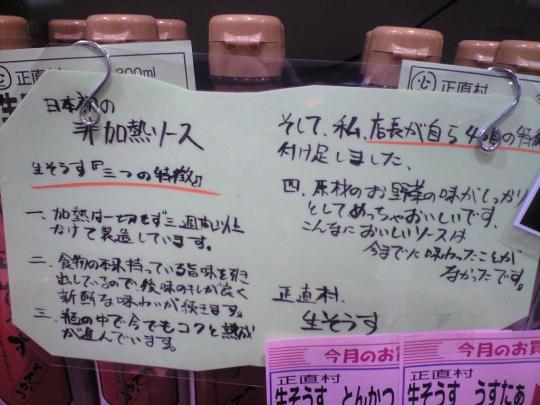 正直村
300ml
正直村
日本初の
非加熱ソース
生そうす『三つの特徴』
一、加熱は一切せず三週間以上
かけて製造しています。
二、食物の本来持っている旨味を引き
出しているので、後味のキレが良く
新鮮な味わいが続きます。
三、瓶の中で今でもコクと熟成
が進んでいます。
そして、私、店長が自ら4つ目の特徴
付け足しました、
四、原材のお野菜の味がしっかり
としてめっちゃおいしいです。
こんなにおいしいソースは
今までに味わったことが
なかったです。
正直村、
生そうす
今月のお
正直村
生そうす とんかつ
今月のお買
正直村
生そうす うすたあ